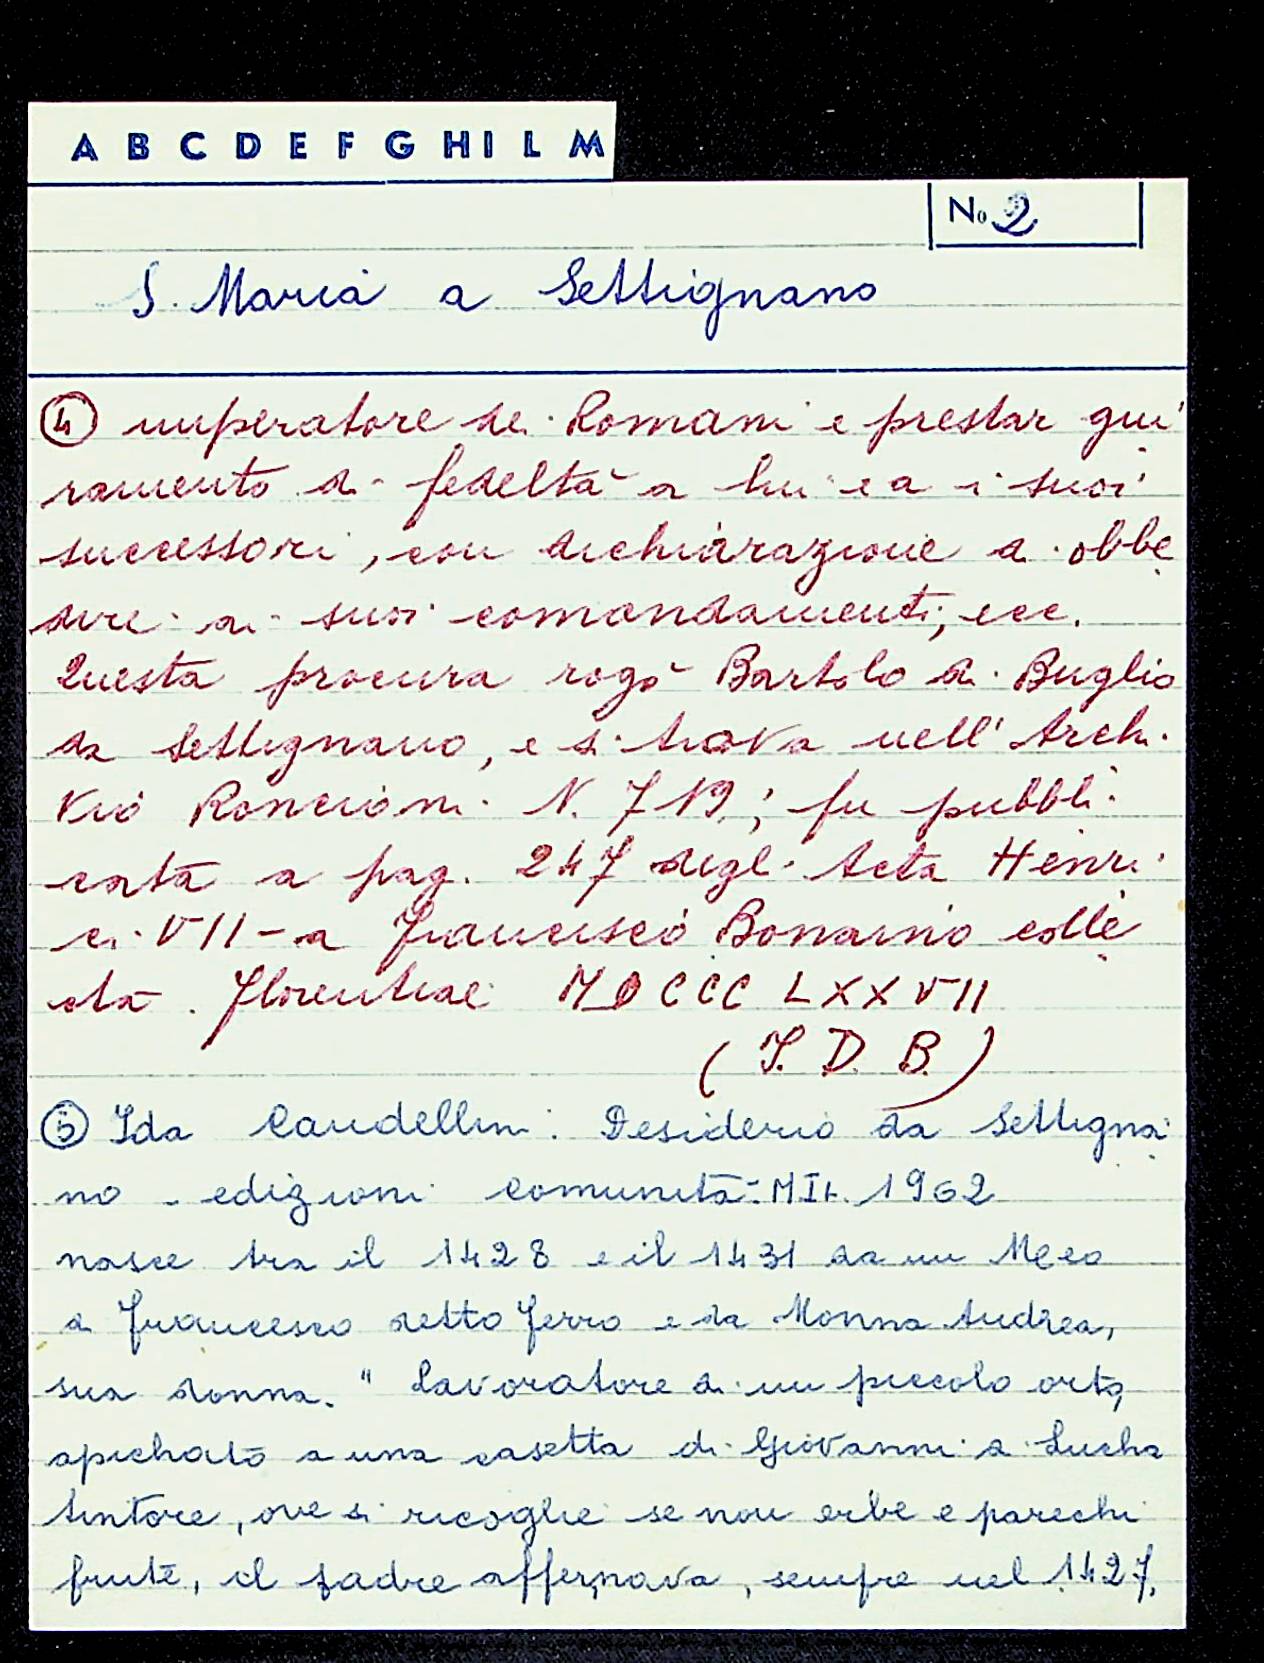 A B C D E F G H I L M
No 2
S. Maria a Settignano
④ imperatore dei Romani e prestar giu
ramento di fedeltà a lui e a i suoi
successori, con dichiarazione di obbe
dire ai suoi comandamenti, ecc.
Questa procura rogò Bartolo di Buglio
da Settignano, e si trova nell' Archi
vio Roncioni N. 719; fu pubbli
cata a pag. 247 degli Acta Henri
ci VII - a Francisco Bonaino colle
cta. Florentiae MDCCCLXXVII
(I. D. B.)
⑤ Ida Cardellini: Desiderio da Settigna
no - edizioni comunità - MIL. 1962
nasce tra il 1428 e il 1431 da un Meo
di Francesco detto Ferro e da Monna Andrea,
sua donna. " Lavoratore di un piccolo orto,
apichato a una casetta di Giovanni di Lucha
tintore, ove si ricoglie se non erbe e parechi
frute, il padre affermava, sempre nel 1427,